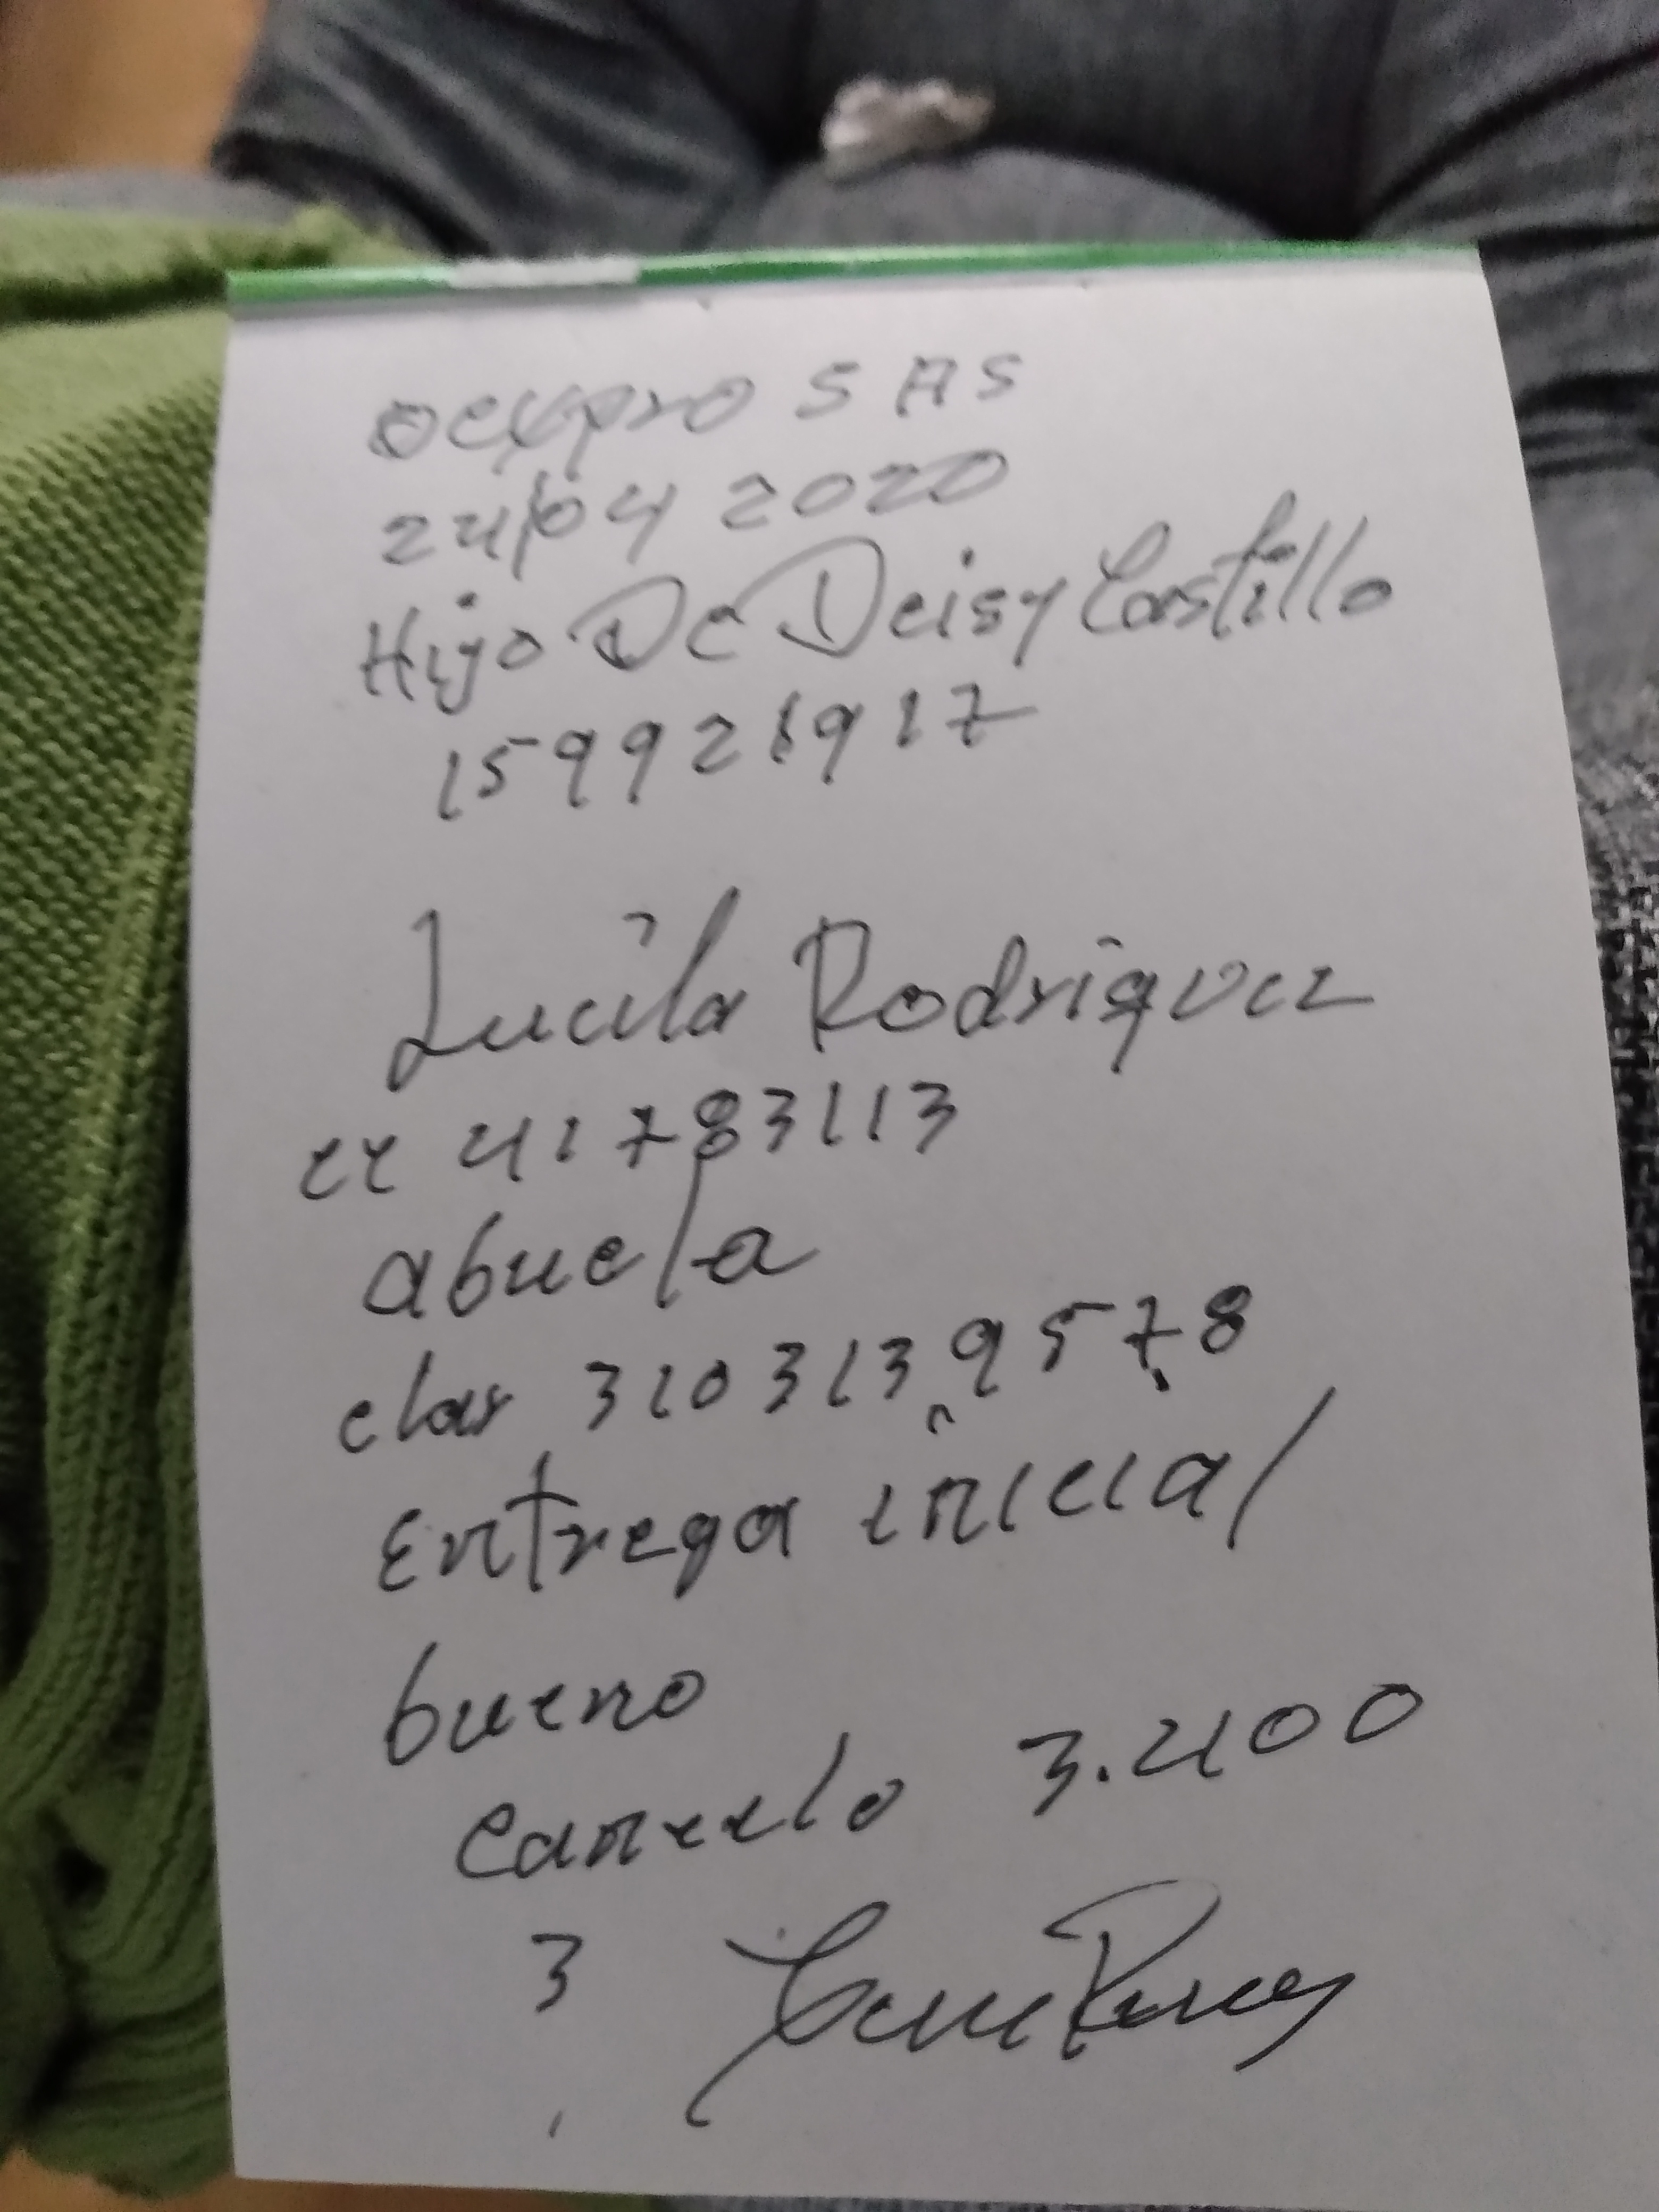 Oexpro S AS
24/04 2020
Hijo De Deisy Castillo
159921917
Lucila Rodriguez
cc 41783113
abuela
clar 3103139578
Entrega inicial
bueno
Cancelo 3.400
3